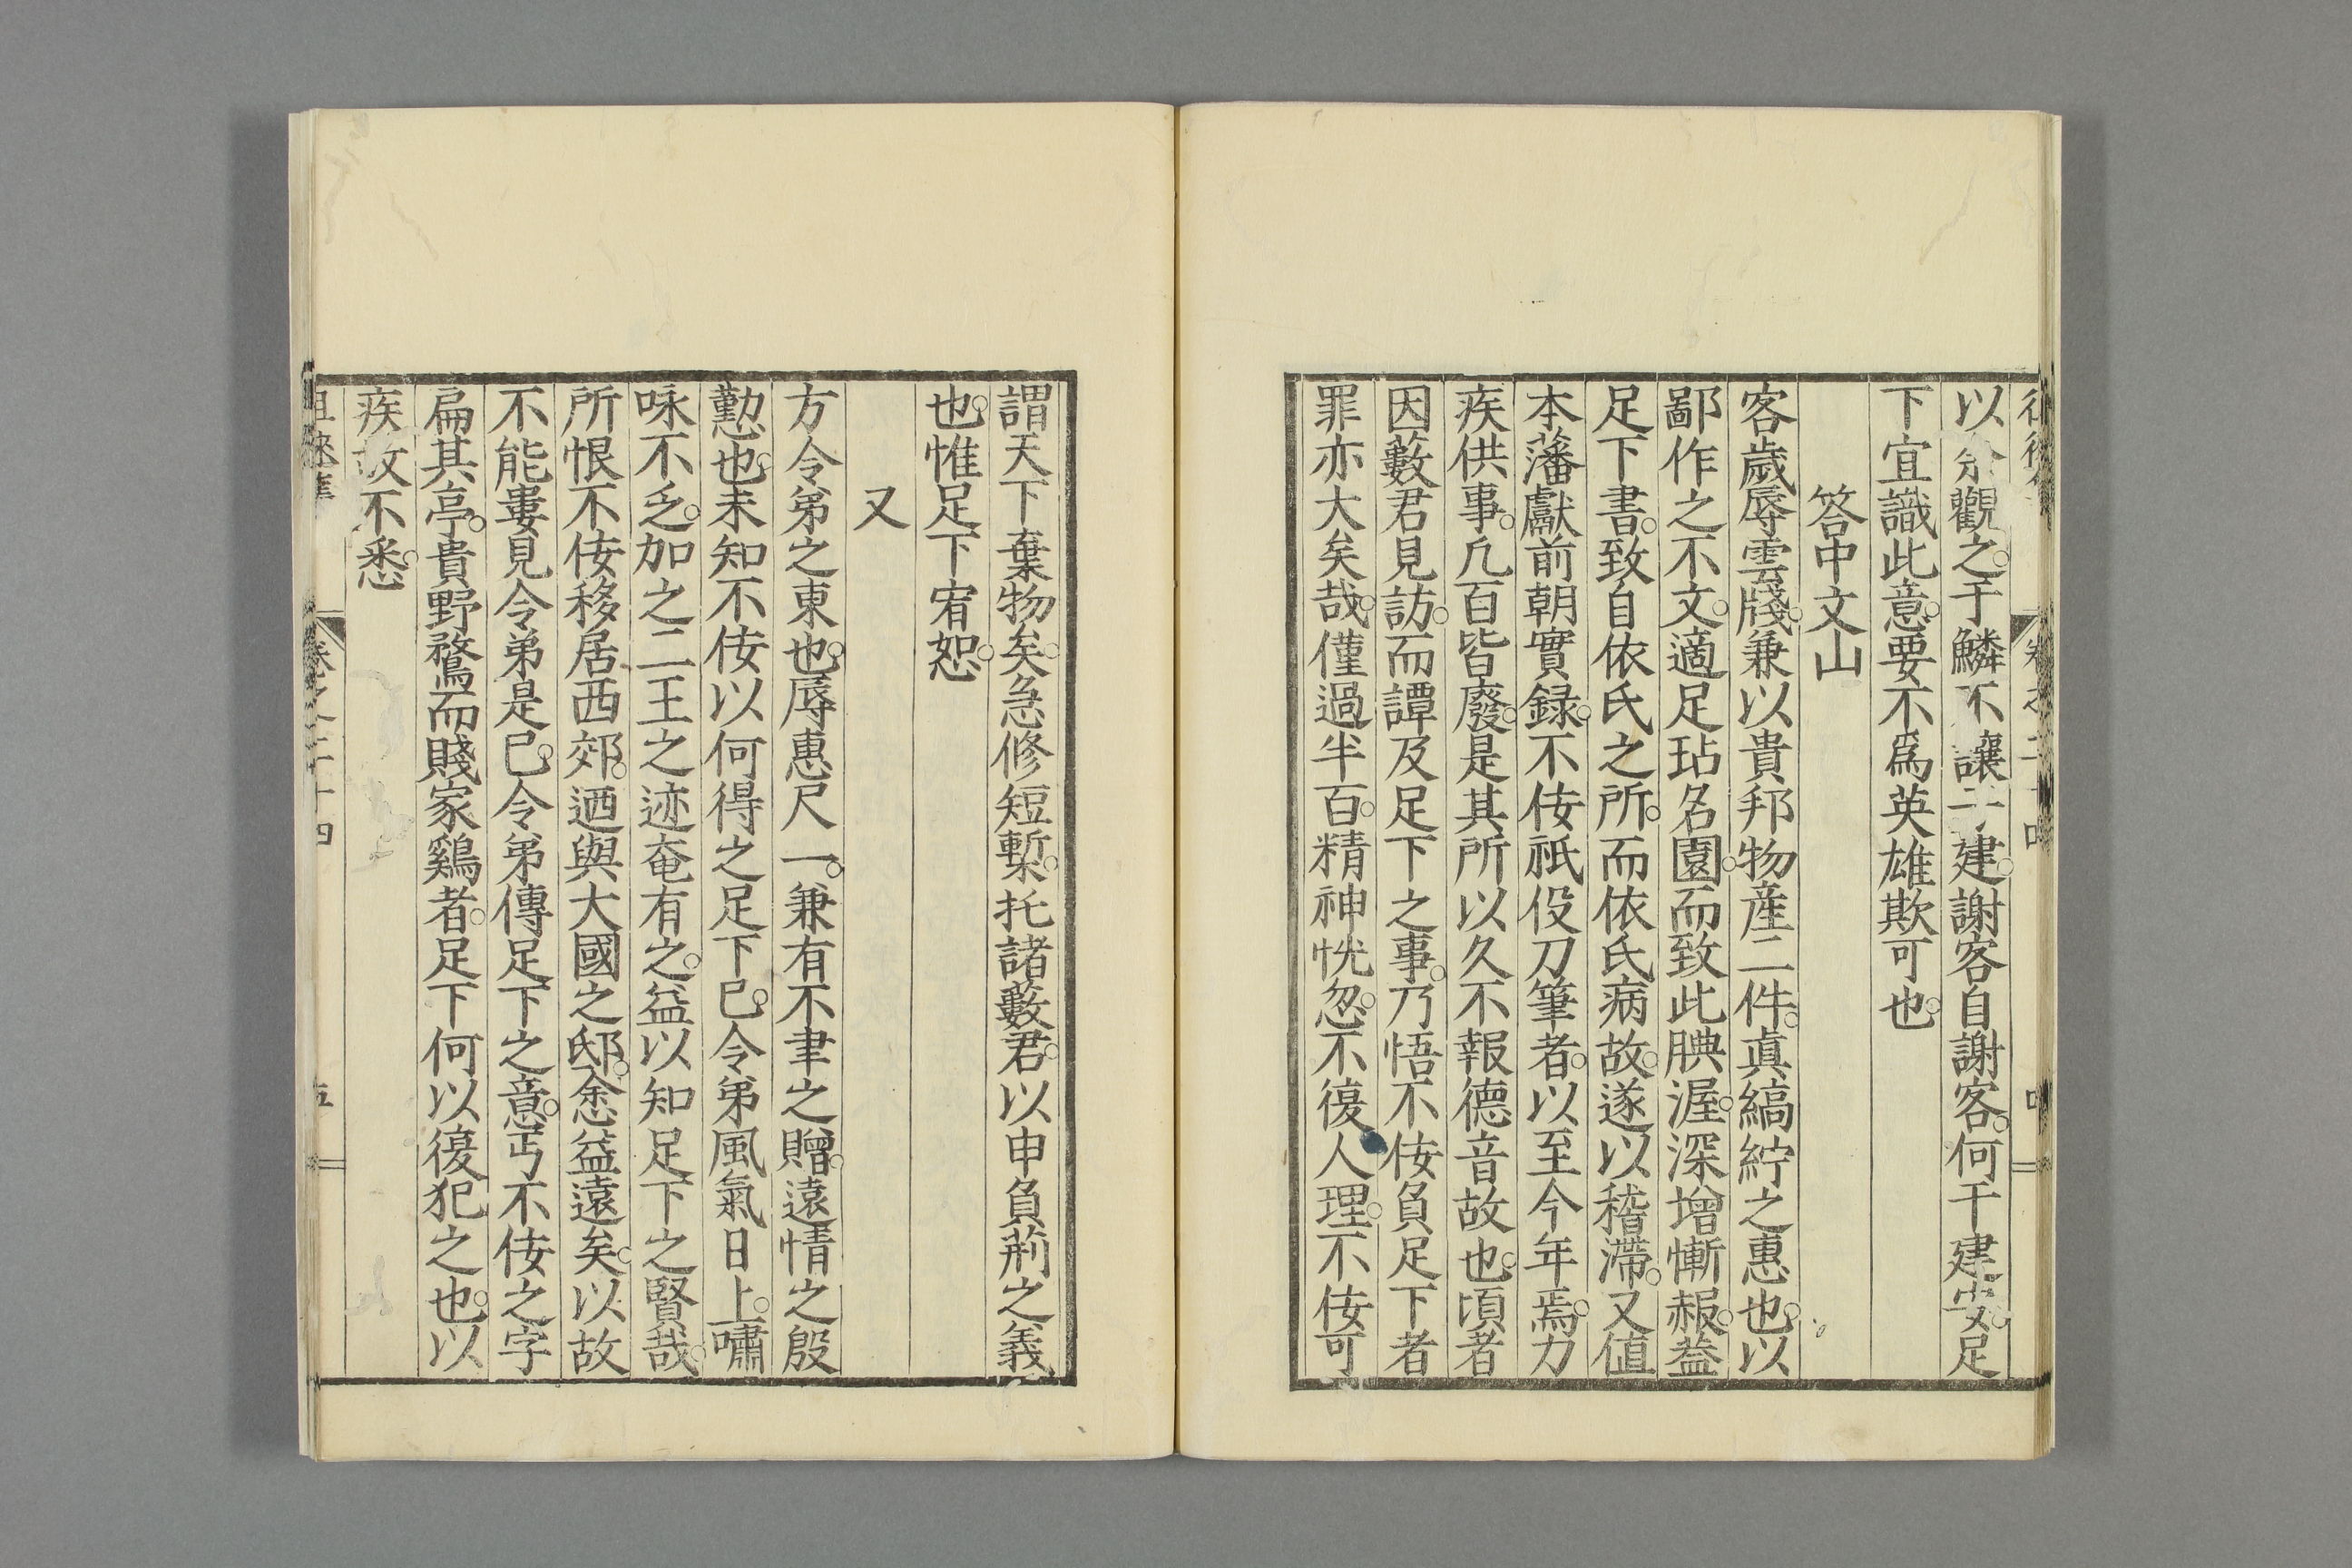 以余觀之于鱗不讓子建謝客自謝客何干建安足
下宜識此意要不爲英雄欺可也
答中文山
客歲辱雲牋兼以貴邦物産二件眞縞紵之惠也以
鄙作之不文適足玷名園而致此腆渥深增慚赧益
足下書致自依氏之所而依氏病故遂以稽滯又値
本藩獻前朝實録不佞祇役刀筆者以至今年焉力
疾供事凢百皆廢是其所以久不報德音故也頃者
因藪君見訪而譚及足下之事乃悟不佞負足下者
罪亦大矣哉僅過半百精神恍忽不復人理不佞可
謂天下棄物矣急修短槧托諸藪君以申負荊之義
也惟足下宥恕
又
方令弟之東也辱惠尺一兼有不聿之贈遠情之殷
懃也未知不佞以何得之足下已令弟風氣日上嘯
咏不乏加之二王之迹奄有之益以知足下之賢哉
所恨不佞移居西郊迺與大國之邸悆益遠矣以故
不能婁見令弟是已令弟傳足下之意丐不佞之字
扁其亭貴野鶩而賤家鷄者足下何以復犯之也以
疾故不悉
卷之二十四
五